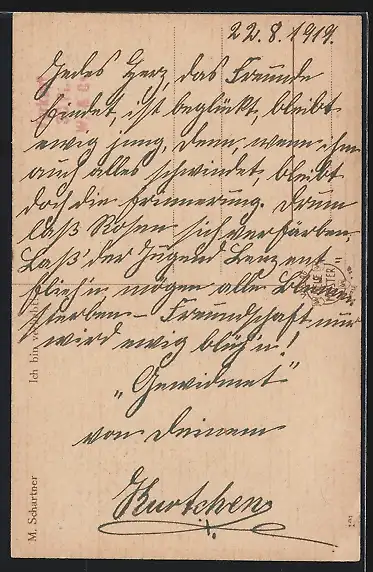 22.8.1919.
Jedes Herz, das Freunde
findet, ist beglückt, bleibt
ewig jung, denn, wenn ihm
auch alles schwindet, bleibt
doch die Erinnerung. Drum
laß Rosen sich verfärben,
Laß' der Jugend Lenz ent
flieh'n mögen alle Blumen
sterben – Freundschaft nur
wird ewig blüh'n!
„Gewidmet"
von Deinem
Kurtchen
Ich bin verliebt
M. Schartner